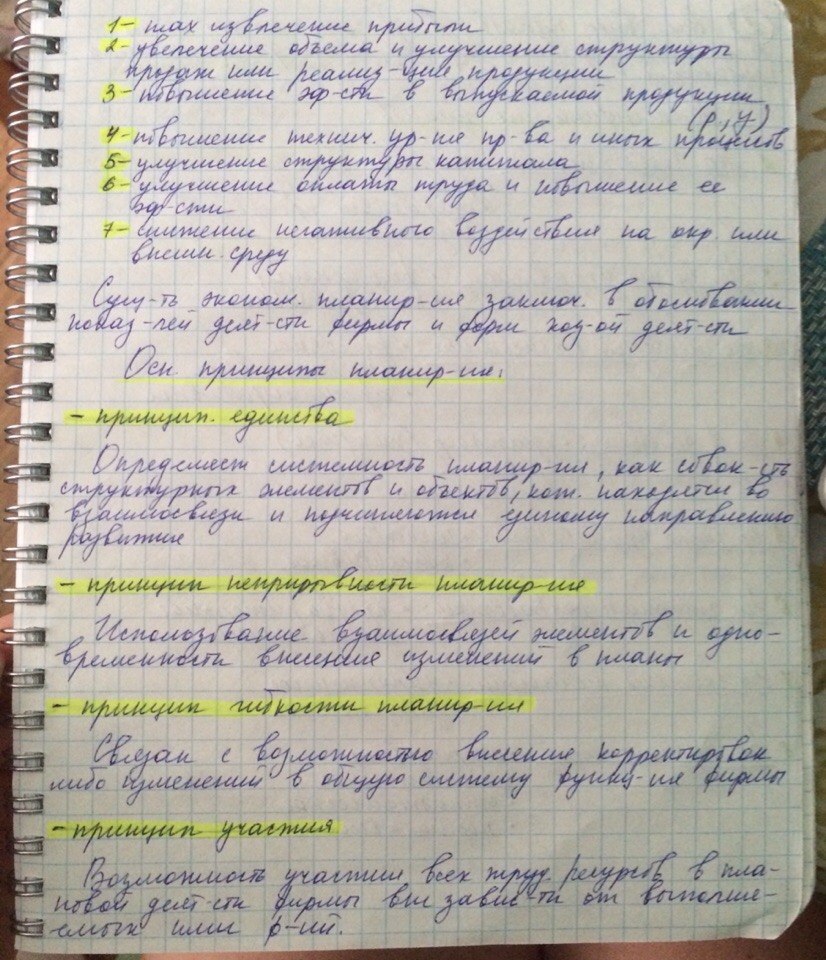 1- max извлечение прибыли
2- увелечение объема и улучшение структуры
продаж или реализ-ции продукции
3- повышение эф-сти в выпускаемой продукции
4- повышение технич. ур-ня пр-ва и иных процессов
5- улучшение структуры капитала
6- улучшение оплаты труда и повышение ее
эф-сти
7- снижение негативного воздействия на окр. или
внешн. среду
Сущ-ть эконом. планир-ия заключ. в обосновании
показ-лей деят-сти фирмы и форм хоз-ой деят-сти
Осн. принципы планир-ия:
- принцип. единства
Определяет системность планир-ия, как совок-сть
структурных элементов и объектов, кот. находятся во
взаимосвязи и подчиняются единому направлению
развития
- принцип неприрывности планир-ия
Использование взаимосвязей элементов и одно-
временности внесения изменений в планы
- принцип гибкости планир-ия
Связан с возможностью внесения корректировок
либо изменений в общую систему функц-ия фирмы
- принцип участия
Возможность участия всех труд. ресурсов в пла-
новой деят-сти фирмы вне завис-ти от выполня-
емых ими ф-ий.